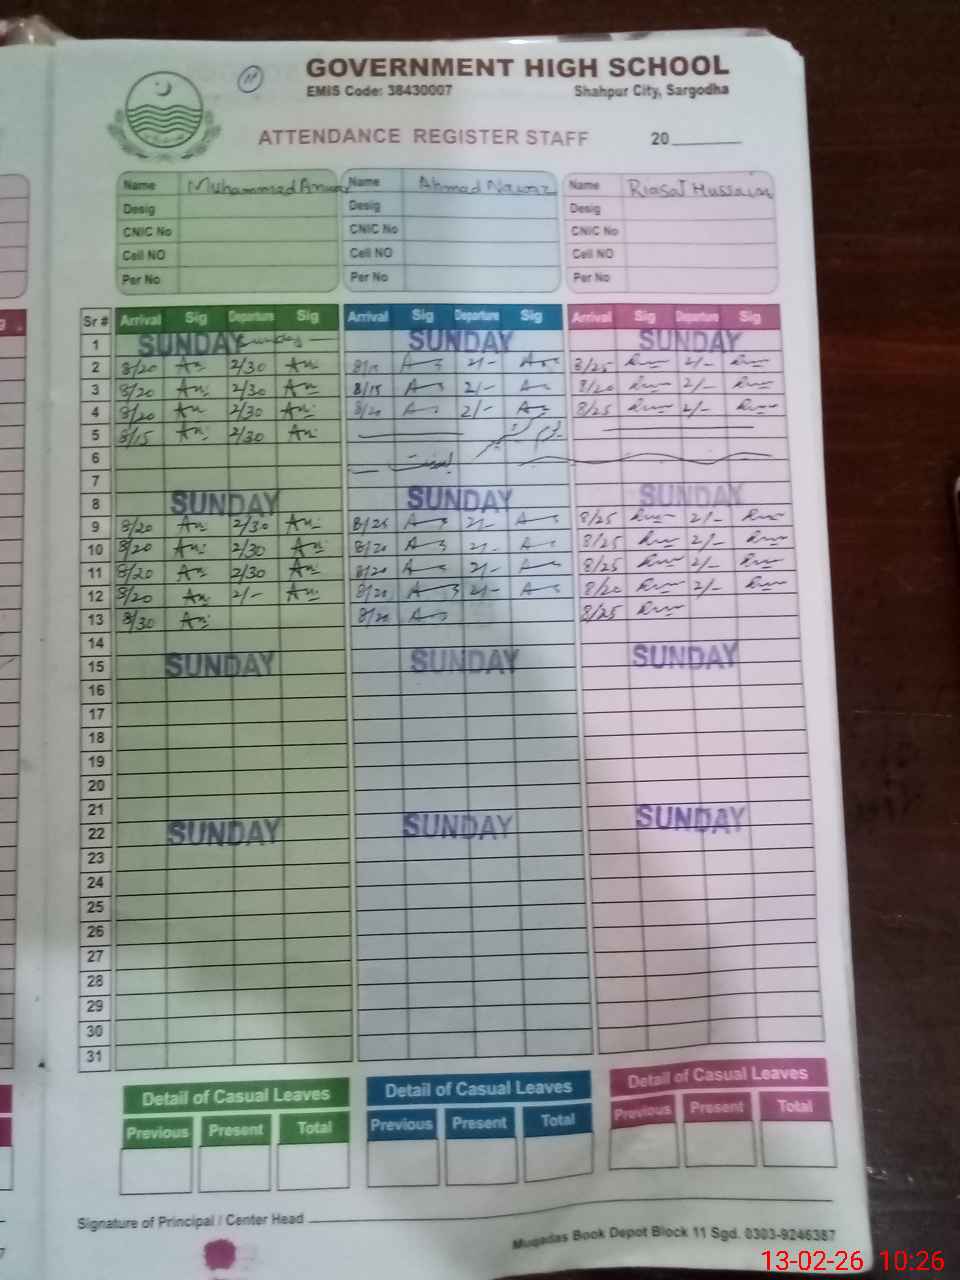 11
GOVERNMENT HIGH SCHOOL
EMIS Code: 38430007 Shahpur City, Sargodha
ATTENDANCE REGISTER STAFF 20
Name Muhammad Anwar Name Ahmad Nawaz Name Riasat Hussain
Desig Desig Desig
CNIC No CNIC No CNIC No
Cell NO Cell NO Cell NO
Per No Per No Per No
Sr # Arrival Sig Departure Sig Arrival Sig Departure Sig Arrival Sig Departure Sig
1 SUNDAY Sunday SUNDAY SUNDAY
2 8/20 2/30 2/- 8/25 2/-
3 8/20 2/30 8/15 2/- 8/20 2/-
4 8/20 2/30 8/20 2/- 8/25 2/-
5 8/15 2/30
6
7
8 SUNDAY SUNDAY SUNDAY
9 8/20 2/30 8/25 2/- 8/25 2/-
10 8/20 2/30 8/20 2/- 8/25 2/-
11 8/20 2/30 8/20 2/- 8/25 2/-
12 8/20 2/- 8/20 2/- 8/20 2/-
13 8/30 8/20 8/25
14
15 SUNDAY SUNDAY SUNDAY
16
17
18
19
20
21
22 SUNDAY SUNDAY SUNDAY
23
24
25
26
27
28
29
30
31
Detail of Casual Leaves Detail of Casual Leaves Detail of Casual Leaves
Previous Present Total Previous Present Total Previous Present Total
Signature of Principal / Center Head
Muqadas Book Depot Block 11 Sgd. 0303-9246387
13-02-26 10:26